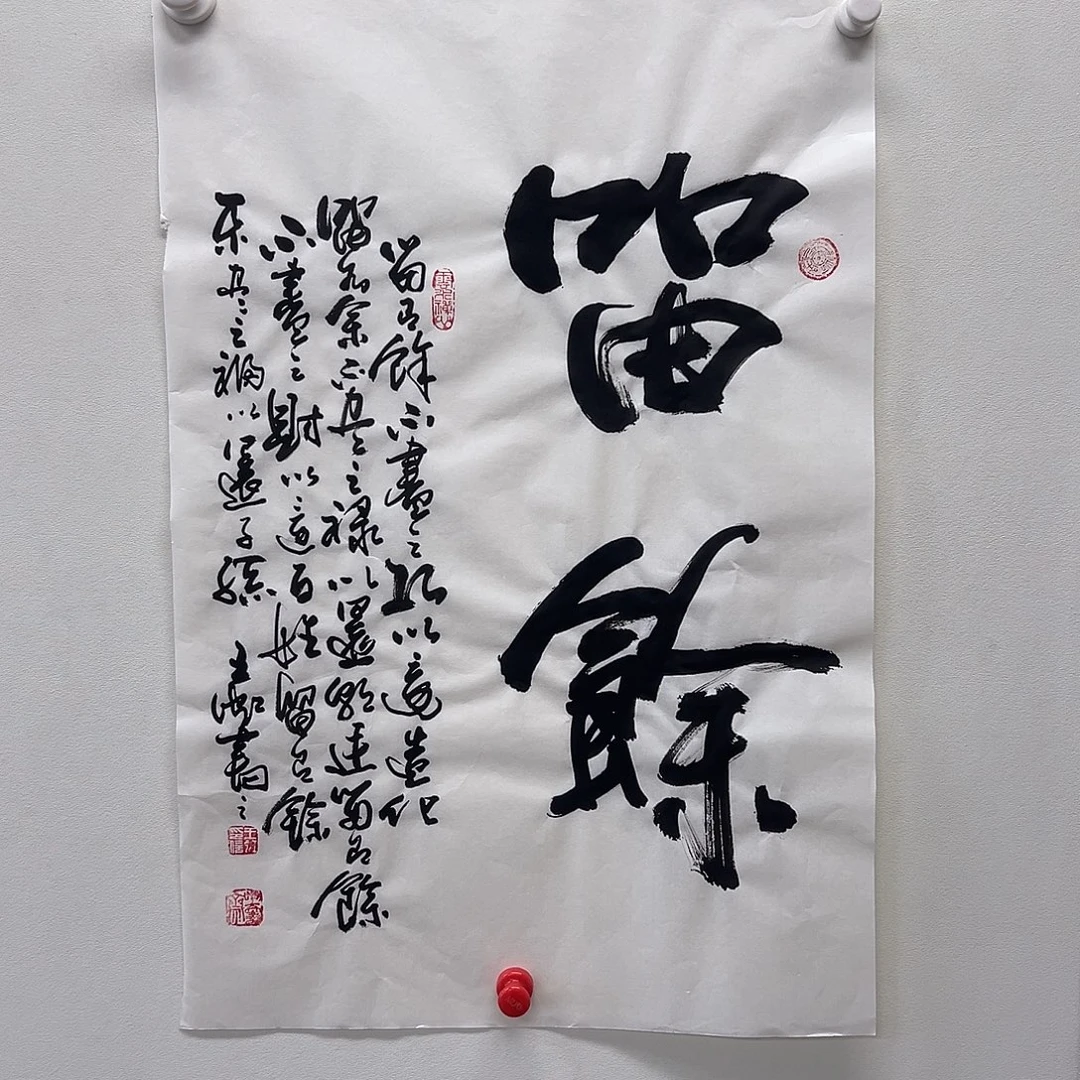 留餘
留有餘不盡之巧以還造化
留有余不尽之禄以還朝廷留有餘
不盡之財以還百姓留有餘
不尽之福以還子孫 王 書之